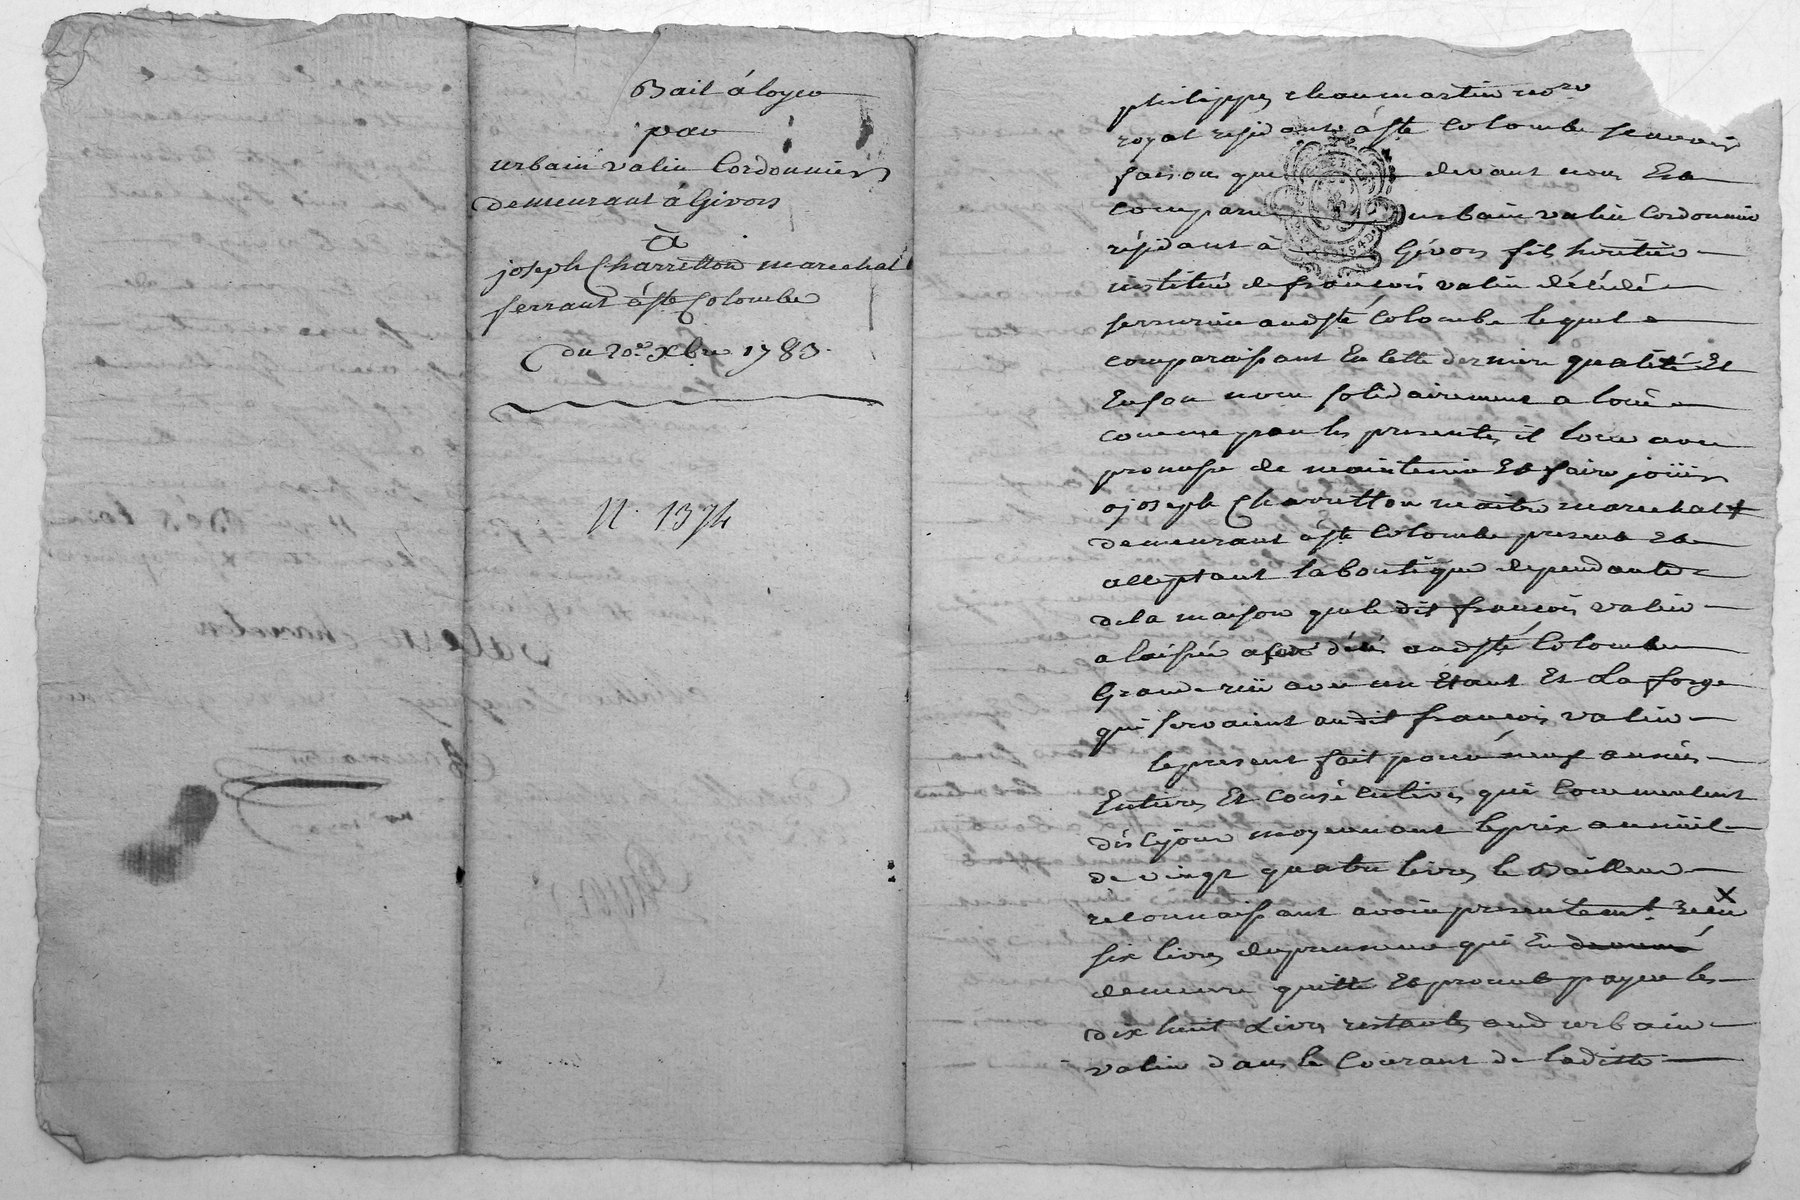 Bail á loyer
par
urbain valin Cordonnier
demeurant à Givors
à
joseph Charretton marechal
ferrant á Ste Colombe
du 20e. Xbre 1783.
N. 1374
philippes chaumartin nore
royal residant á Ste Colombe scavoir
faisons que devant nous Est
comparu urbain valin Cordonnier
résidant à Givors fils héritier
institué de francois valin décédé
serrurier aud Ste Colombe lequel
comparaissant En cette derniere qualité Et
En son nom solidairement a loué
comme par les presentes il loue avec
promesse de maintenir Et faire joüir
a joseph Charretton maitre marechal
demeurant á Ste Colombe present Et
acceptant la boutique dependante
de la maison que le dit francois valin
a laissée a son décés aud Ste Colombe
Grande rüe avec un Etaut Et La forge
qui servaient audit francois valin
le present fait pour neuf années
Entieres Et consécutives qui Commencent
dés ce jour moyennant le prix annüel
de vingt quatre livres le Bailleur
reconnaissant avoir presentement recu X
six livres du preneur qui En
demeure quitte Et promet payer les
dix huit Livres restantes aud urbain
valin dans le Courant de laditte